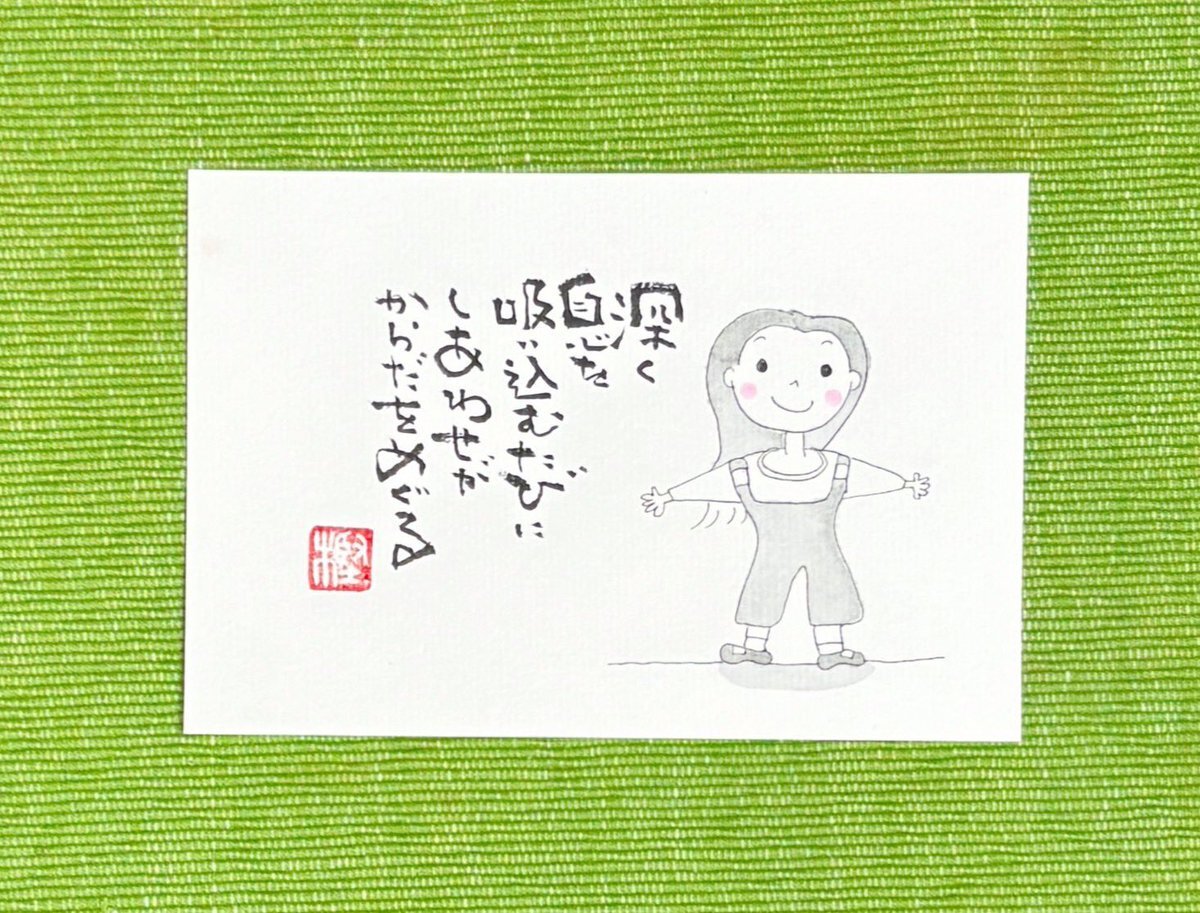 深く
息を
吸い込むたびに
しあわせが
からだをめぐる